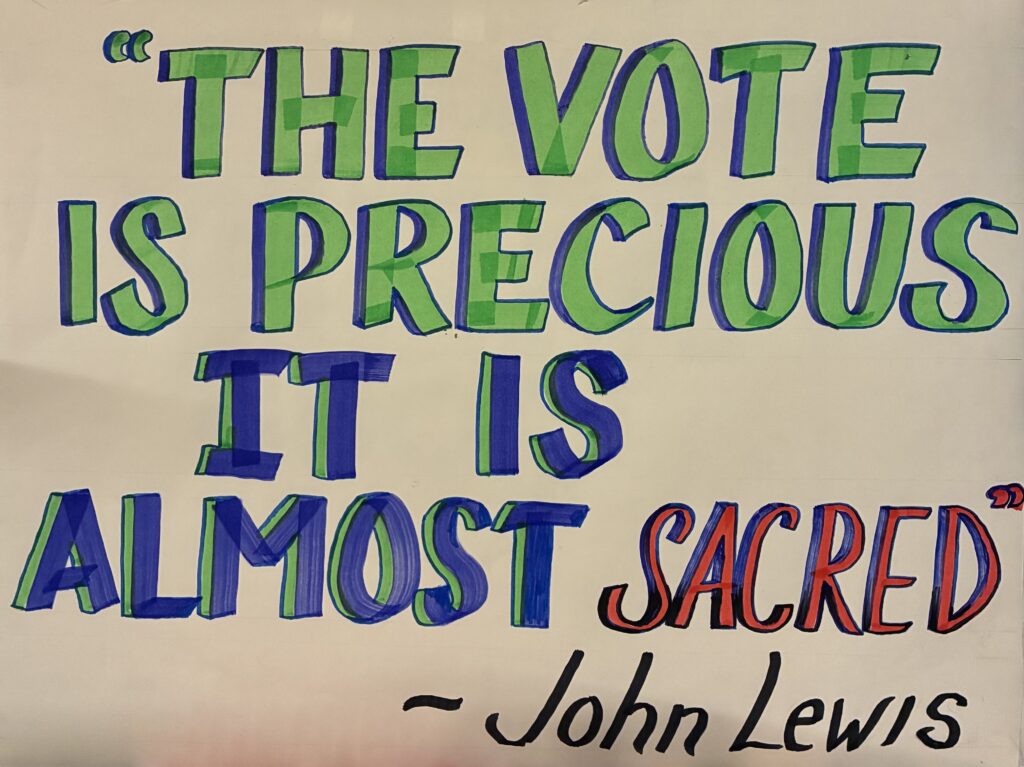 “THE VOTE
IS PRECIOUS
IT IS
ALMOST SACRED”
~ John Lewis